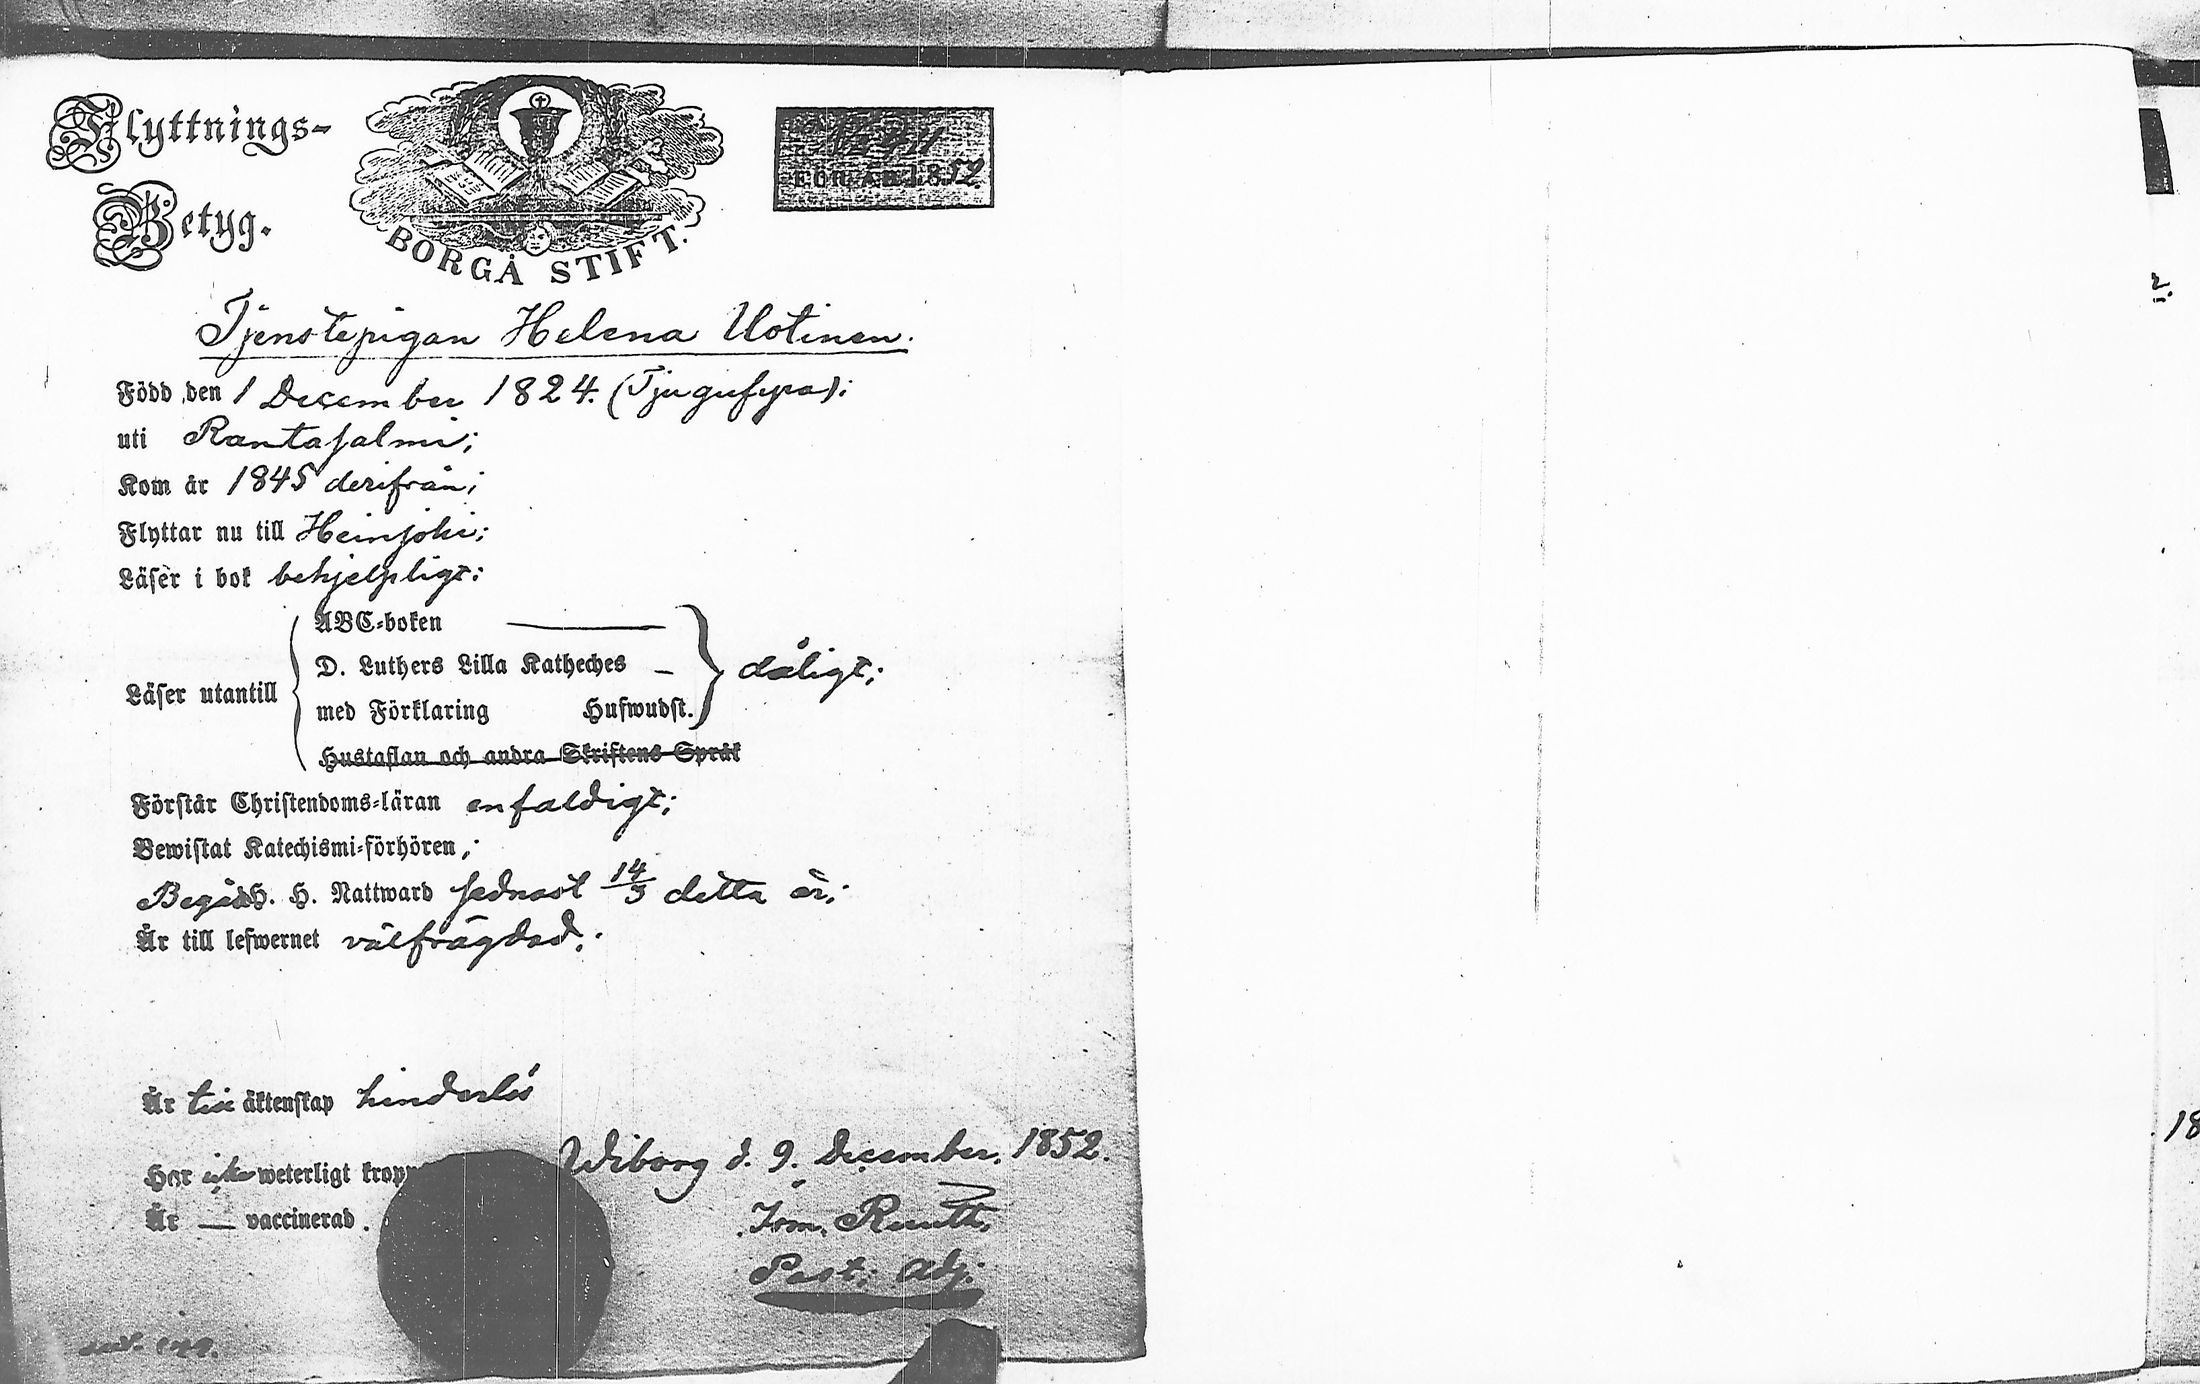 Flyttnings-
Betyg.
BORGÅ STIFT.
FÖR ÅR 1852.
Tjenstepigan Helena Uotinen.
Född den 1 December 1824. (Tjugufyra);
uti Rantasalmi;
Kom år 1845 derifrån;
Flyttar nu till Heinjoki;
Läser i bok behjelpligt;
ABC-boken
D. Luthers Lilla Katheches
Läser utantill
dåligt;
med Förklaring Hufwudst.
Hustaflan och andra Skriftens Språk
Förstår Christendoms-läran enfaldigt;
Bewistat Katechismi-förhören,
Begått H. H. Nattward sednast 14/3 detta år;
Är till lefwernet välfrägdad.
Är till äktenskap hinderlös
Har icke weterligt kropp
Wiborg d. 9. December. 1852.
Är — vaccinerad.
Past. Adj.